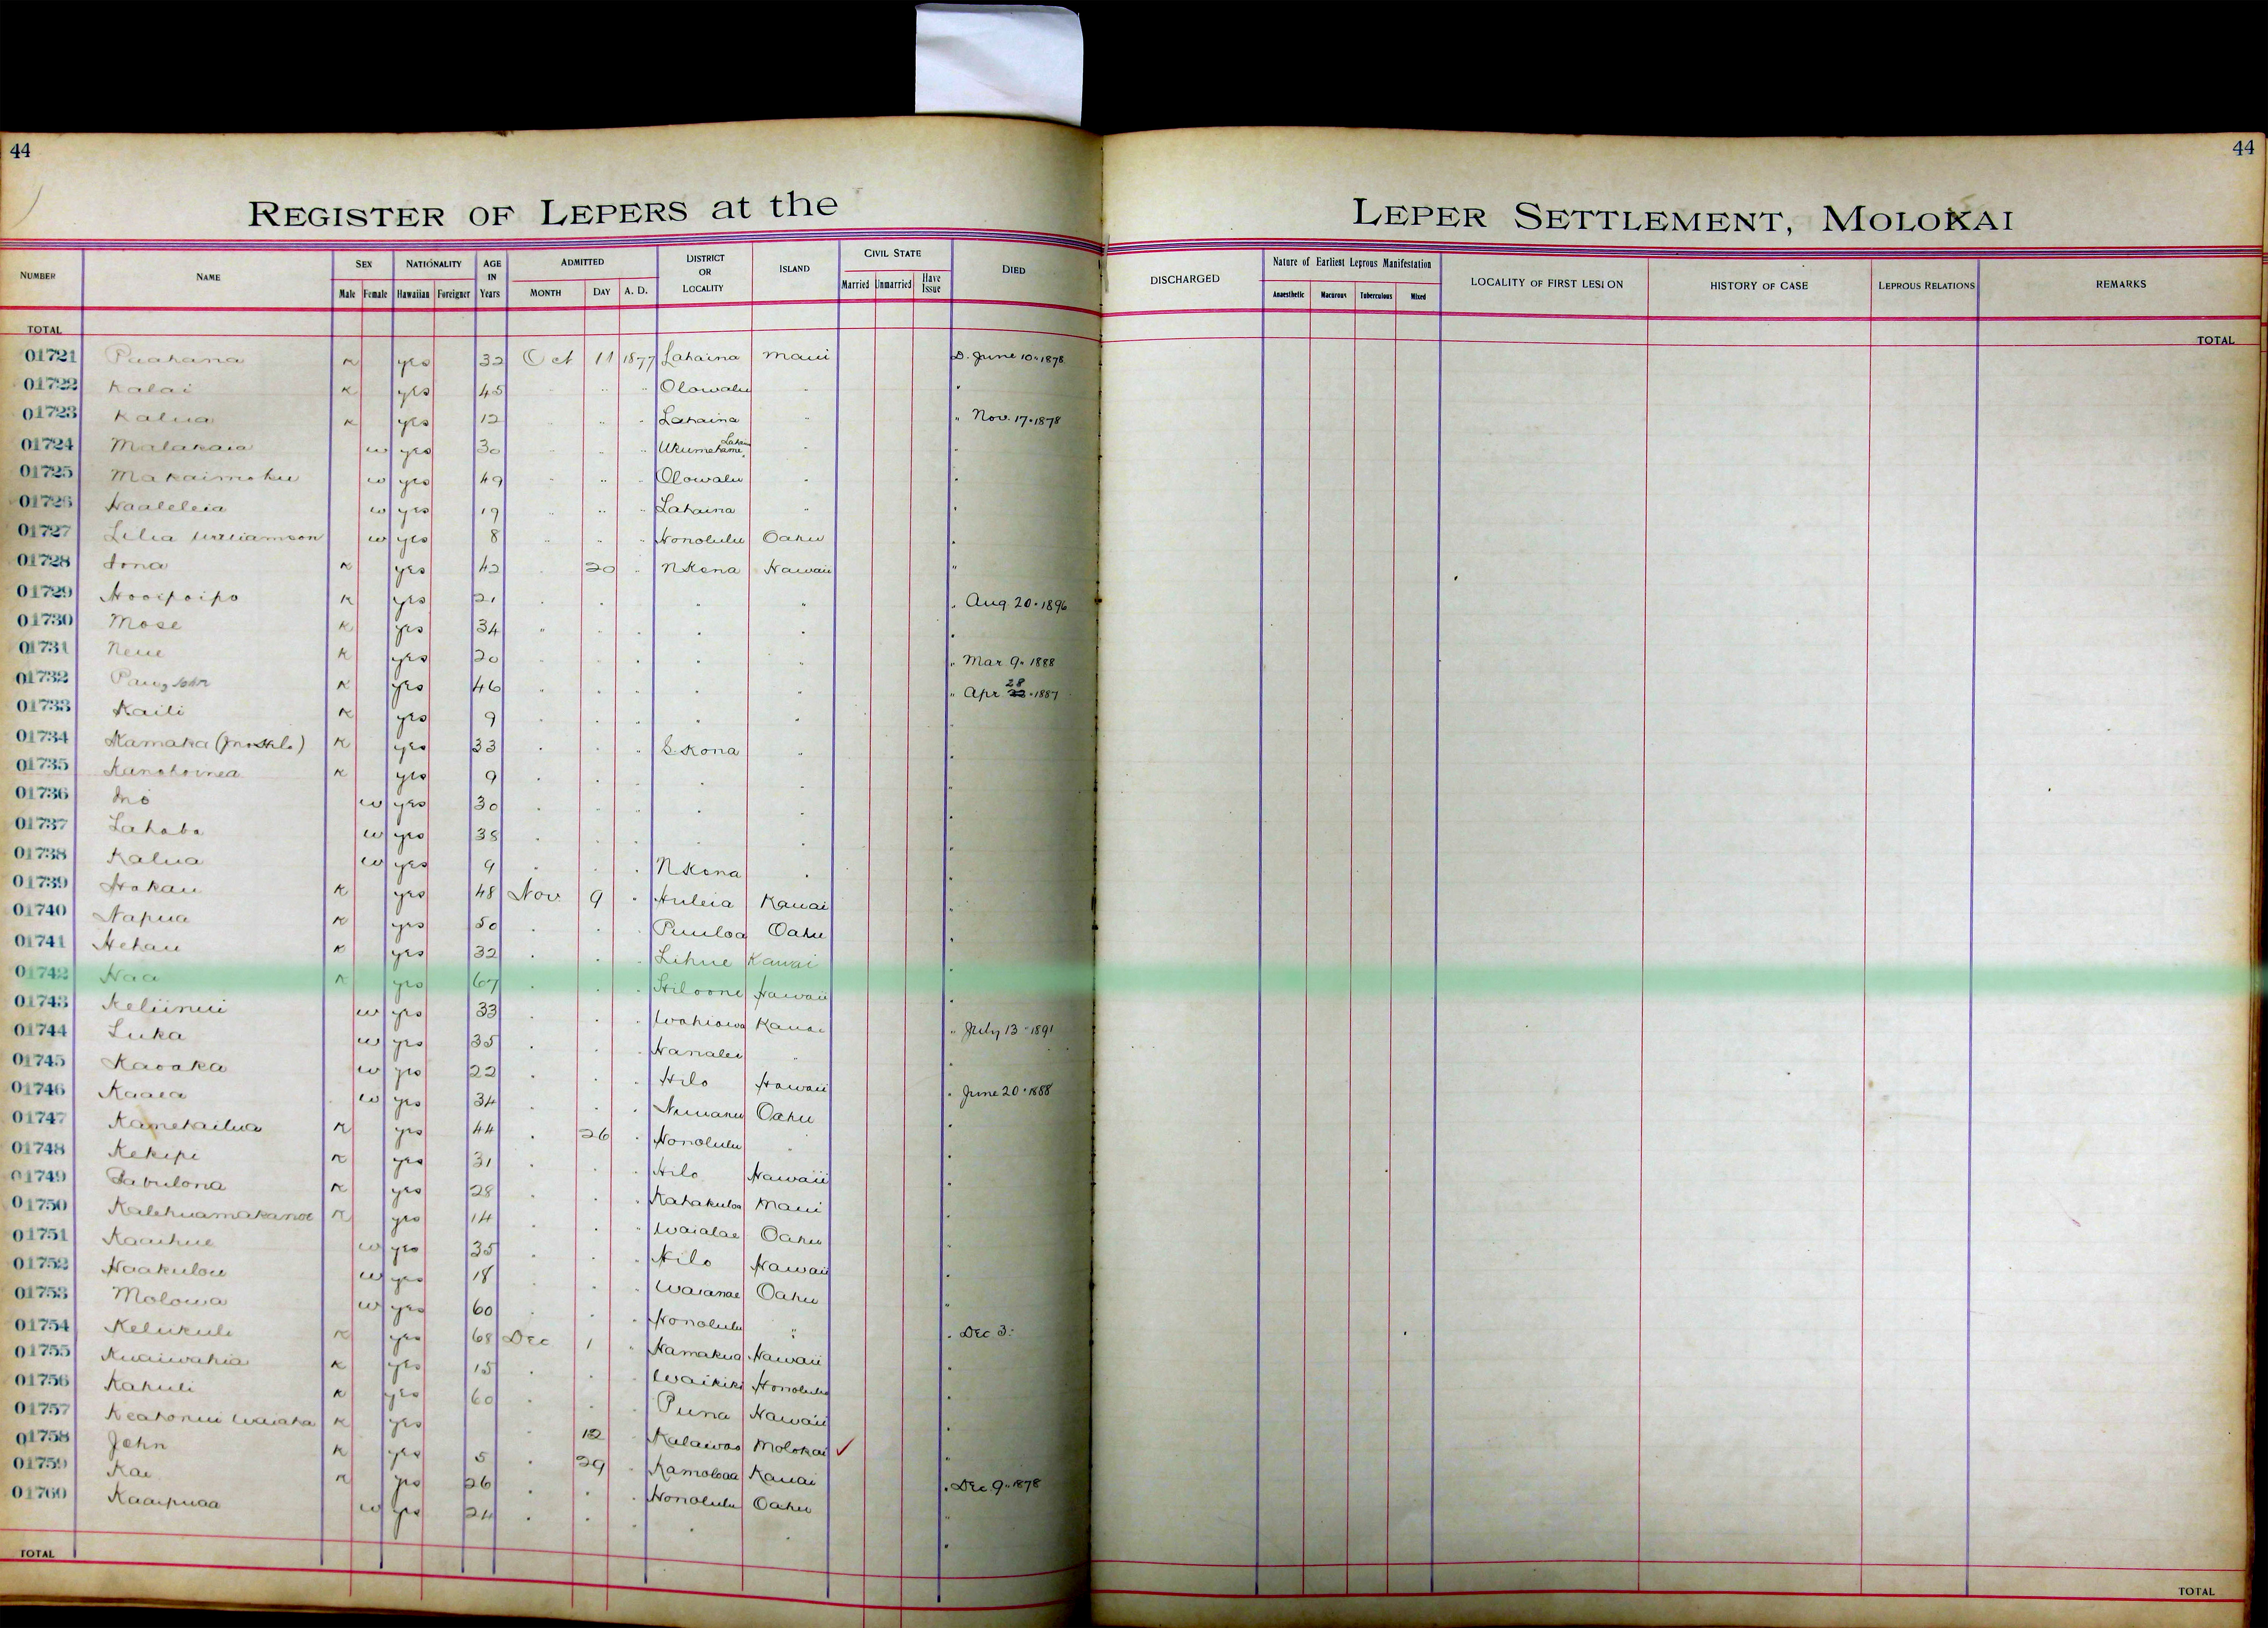 44
44
REGISTER OF LEPERS at the
LEPER SETTLEMENT, MOLOKAI
NUMBER NAME SEX Male Female NATIONALITY Hawaiian Foreigner AGE IN Years ADMITTED MONTH DAY A. D. DISTRICT OR LOCALITY ISLAND CIVIL STATE Married Unmarried Have Issue DIED
DISCHARGED Nature of Earliest Leprous Manifestation Anaesthetic Macurous Tuberculous Mixed LOCALITY OF FIRST LESION HISTORY OF CASE LEPROUS RELATIONS REMARKS
TOTAL
TOTAL
01721 Puahana K yes 32 Oct 11 1877 Lahaina Maui D. June 10 " 1878
01722 Kalai K yes 45 " " " Olowalu " "
01723 Kalua K yes 12 " " " Lahaina " " Nov. 17 " 1878
01724 Malakaia w yes 30 " " " Ukumehame, Lahaina " "
01725 Makaimoku w yes 49 " " " Olowalu " "
01726 Haaleleia w yes 19 " " " Lahaina " "
01727 Lilia Williamson w yes 8 " " " Honolulu Oahu "
01728 Iona K yes 42 " 20 " N Kona Hawaii "
01729 Hooipoipo K yes 21 " " " " " " Aug. 20 " 1896
01730 Mose K yes 34 " " " " " "
01731 Neue K yes 20 " " " " " " Mar 9 " 1888
01732 K yes 46 " " " " " " Apr 28 " 1887
01733 Kaili K yes 9 " " " " " "
01734 Kamaka K yes 33 " " " S. Kona " "
01735 K yes 9 " " " " " "
01736 w yes 30 " " " " " "
01737 Lahaba w yes 38 " " " " " "
01738 Kalua w yes 9 " " " N Kona " "
01739 Hokau K yes 48 Nov 9 " Huleia Kauai "
01740 Napua K yes 50 " " " Puuloa Oahu "
01741 Hehau K yes 32 " " " Lihue Kauai "
01742 Haa K yes 67 " " " Hiloone Hawaii "
01743 Keliinui w yes 33 " " " Wahiawa Kauai " July 13 " 1891
01744 Luka w yes 35 " " " Hanalei " "
01745 Kaoaka w yes 22 " " " Hilo Hawaii " June 20 " 1888
01746 Kaaea w yes 34 " " " Nuuanu Oahu "
01747 Kamekailua K yes 44 " 26 " Honolulu " "
01748 Kekipi K yes 31 " " " Hilo Hawaii "
01749 Zabulona K yes 28 " " " Kahakuloa Maui "
01750 Kalehuamakanoe K yes 14 " " " Waialae Oahu "
01751 Kaaihue w yes 35 " " " Hilo Hawaii "
01752 Haakulou w yes 18 " " " Waianae Oahu "
01753 Molowa w yes 60 " " " Honolulu " " Dec 3.
01754 Kelukuli K yes 68 Dec 1 " Hamakua Hawaii "
01755 Kuaiwahia K yes 15 " " " Waikiki Honolulu "
01756 Kahuli K yes 60 " " " Puna Hawaii "
01757 Keahonui Waiaha K yes " 12 " Kalawao Molokai ✓ "
01758 John K yes 5 " 29 " Kamoloaa Kauai " Dec 9 " 1878
01759 Kae K yes 26 " " " Honolulu Oahu "
01760 Kaaipuaa w yes 24 " " " " " "
TOTAL
TOTAL